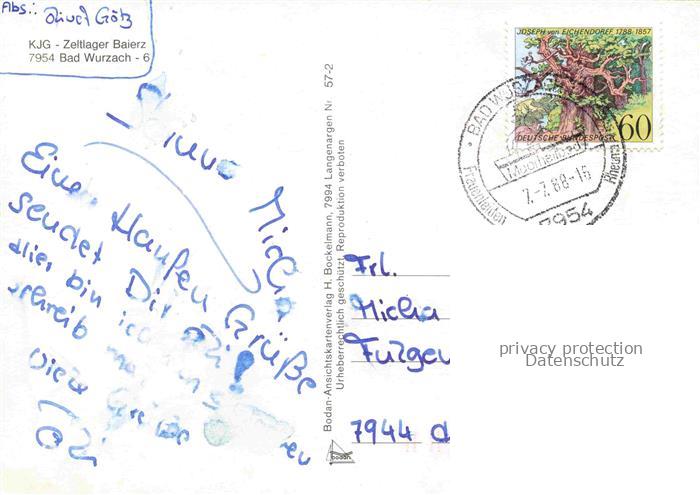 Abs.: Oliver Götz
KJG - Zeltlager Baierz
7954 Bad Wurzach - 6
Micha
Einen Haufen Grüße
sendet Dir Oli!
Hier bin ich
schreib
Viele Grüße
Oli
Bodan-Ansichtskartenverlag H. Bockelmann, 7994 Langenargen Nr. 57-2
Urheberrechtlich geschützt, Reproduktion verboten
bodan
JOSEPH von EICHENDORFF 1788-1857
DEUTSCHE BUNDESPOST
60
BAD WURZ
Moorheilbad
7.-7.88-15
Frauenleiden
Rheuma
7954
Frl.
Micha
7944
privacy protection
Datenschutz